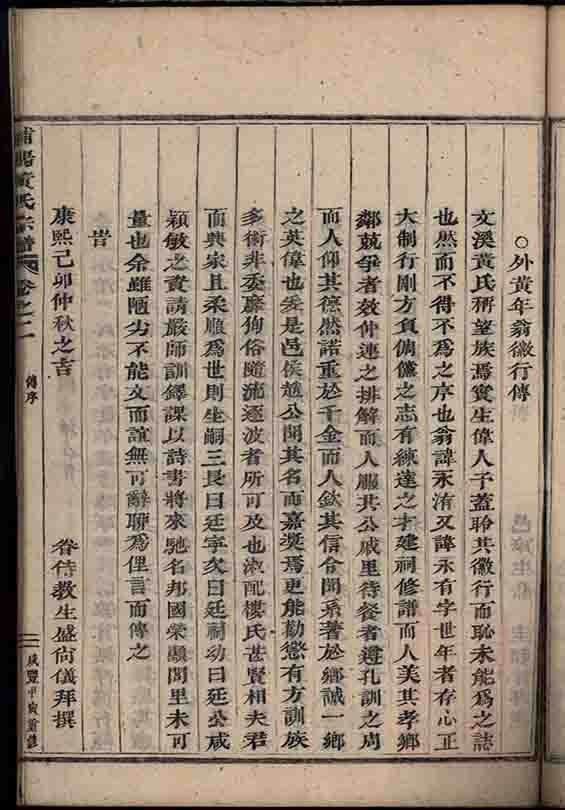 ○外黃年翁徽行傳
文溪黃氏稱望族焉實生偉人予蓋聆其徽行而恥未能為之誌
也然而不得不為之序也翁諱永洧又諱永有字世年者存心正
大制行剛方負倜儻之志有練達之才建祠修譜而人美其孝鄉
鄰競爭者效仲連之排解而人服其公戚里待餐者遵孔訓之周
而人仰其德然諾重於千金而人欽其信令聞系著於鄉誠一鄉
之英偉也爰是邑侯趙公聞其名而嘉獎焉更能勤慇有方訓族
多術非委靡狥俗隨流逐波者所可及也淑配樓氏甚賢相夫君
而興家且柔順為世則生嗣三長曰廷字次曰廷祠幼曰廷公咸
穎敏之資請嚴師訓鐸課以詩書將來馳名邦國榮顯閭里未可
量也余雖陋劣不能文而誼無可辭聊為俚言而傳之
旹
康熙己卯仲秋之吉
眷侍教生盛尙儀拜撰
浦陽黃氏宗譜
卷之二
傳序
咸豐甲寅重修